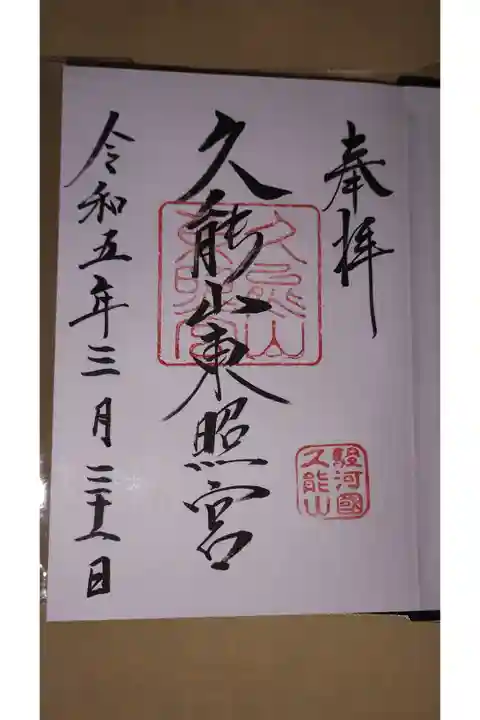 奉拝
久能山東照宮
久能山
東照宮
駿河國
久能山
令和五年三月二十八日